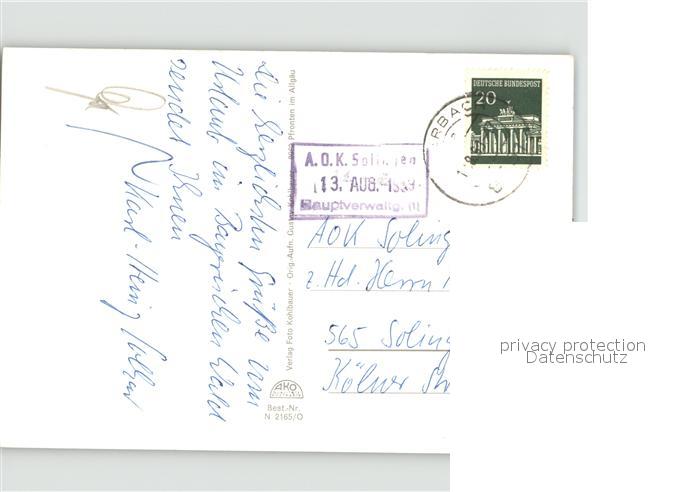 Die herzlichsten Grüße vom
Urlaub im Bayrischen Wald
sendet Ihnen
Karl-Heinz
Verlag Foto Kohlbauer · Orig.-Aufn. Gustav Kohlbauer · 8962 Pfronten im Allgäu
AKO
Best.-Nr.
N 2165/O
DEUTSCHE BUNDESPOST
20
A.O.K. Solingen
13. AUG. 1969
Hauptverwaltg. (1)
AOK Soling
z. Hd. Herrn
565 Soling
Kölner Str
privacy protection
Datenschutz